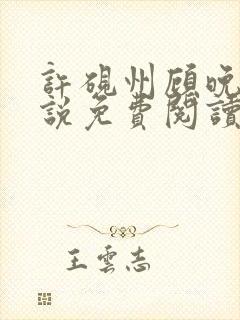 許硯州顧晚
說免費閱讀
王雲志